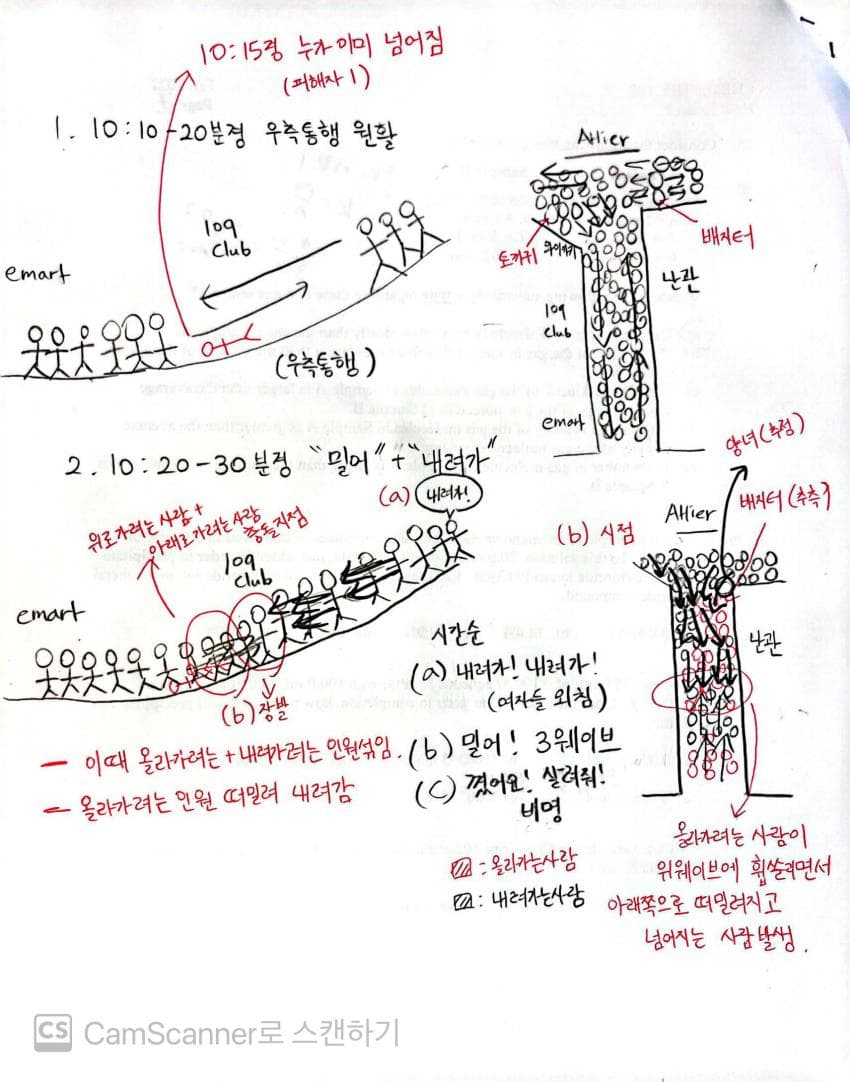 10:15경 누가 이미 넘어짐
(피해자 1)
1. 10:10-20분경 우측통행 원활
109
Club
emart
(우측통행)
Atlier
토끼귀
와이키키
배지터
109
Club
난관
emart
2. 10:20-30분경 "밀어" + "내려가"
(a)
내려가!
위로가려는사람 +
아래로가려는사람
충돌지점
109
Club
emart
(b) 장발
시간순
(a) 내려가! 내려가!
(여자들 외침)
(b) 밀어! 3웨이브
(C) 꼈어요! 살려줘!
비명
– 이때 올라가려는+내려가려는 인원섞임.
– 올라가려는 인원 떠밀려 내려감
(b) 시점
망녀(추정)
배지터(추측)
Atlier
난관
올라가려는 사람이
위웨이브에 휩쓸리면서
아래쪽으로 떠밀려지고
넘어지는 사람발생.
: 올라가는사람
: 내려가는사람
CS CamScanner로 스캔하기